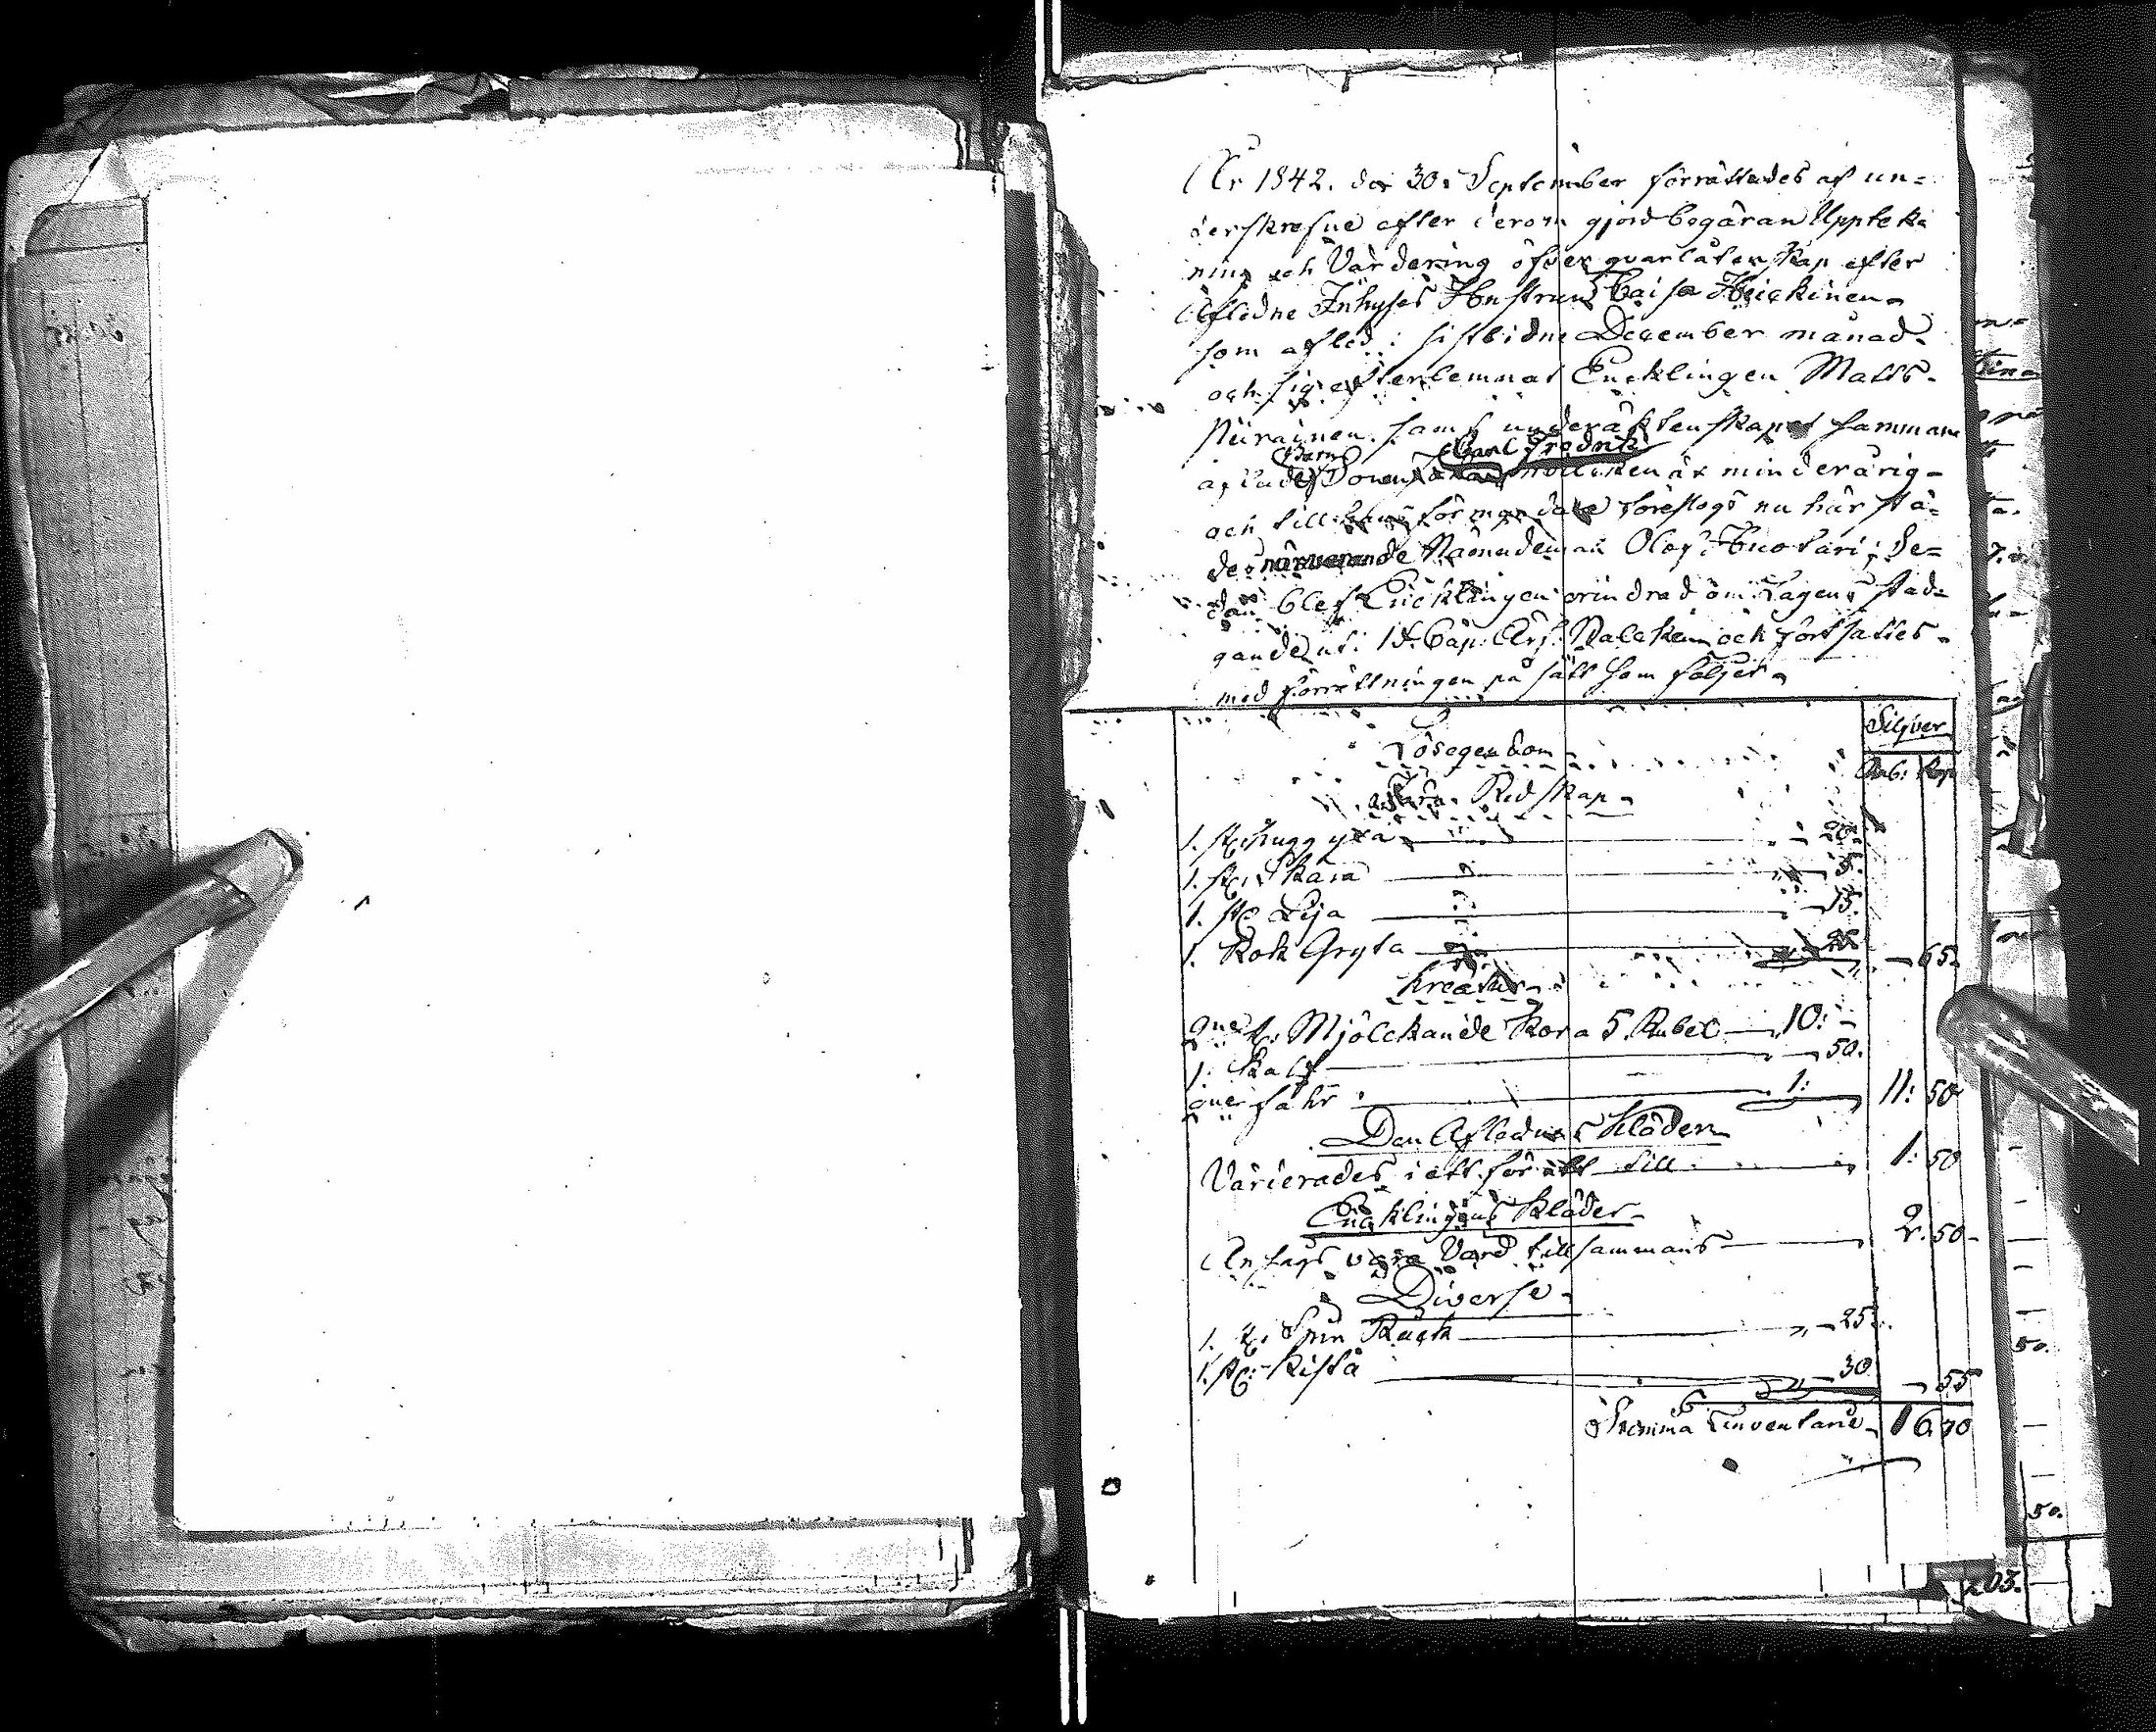 År 1842. den 30. September förrättades af un=
derskrefne efter derom gjord begäran Uppteck
ning och Värdering öfver qvarlåtenskap efter
Aflidne Inhyses Hustrun Caisa Heickinen
som afled i sistlidne December månad
och sig efterlemnat Encklingen Matts
Niirainen samt under äktenskapet samman
Barn Carl Fredrik
aflade Sonen hvilken är minderårig
och till förmyndare föreslogs nu här stä=
des närvarande Nämndeman Olof Huotari; Se=
dan blef Encklingen erindrad om Lagens stad=
gande uti Cap: Ärf. Balcken och fortsattes
med förrättningen på sätt som följer
Silfver
Rub: Kop
Lösegendom
Järn Redskap
1. st. hugg yxa 20.
1. st. Skära 5.
1. st. Lija 15.
1. Kok Gryta 25. 65.
Kreatur
2ne st. Mjölckande Kor a 5. Rubel 10:
1. Kalf 50.
2ne får 1: 11: 50
Den Aflednes Kläder
Värderades i ett för allt till 1: 50
Encklingens Kläder
Antags vara Värd tillsammans 2. 50
Diverse
1. st. Spin Råck 25.
1. st. Kista 30 55
Summa Inventarie 16. 70
50.
50.